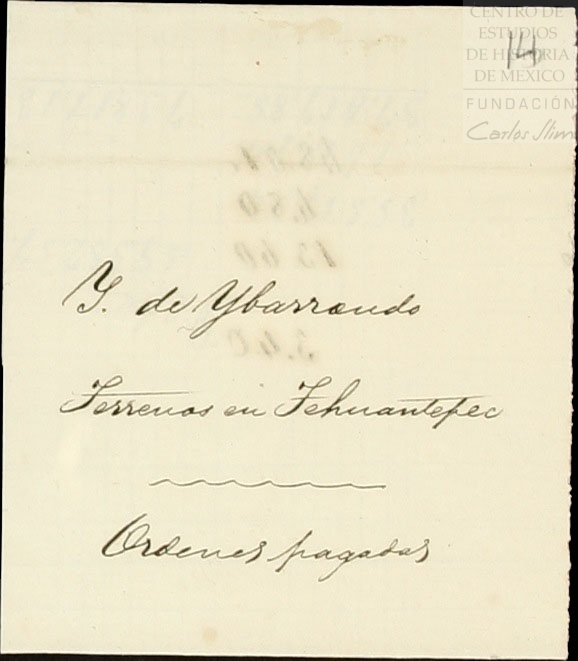 CENTRO DE
ESTUDIOS
DE HISTORIA
DE MEXICO
FUNDACIÓN
Carlos Slim
14
Y. de Ybarrondo
Terrenos en Tehuantepec
Ordenes pagadas